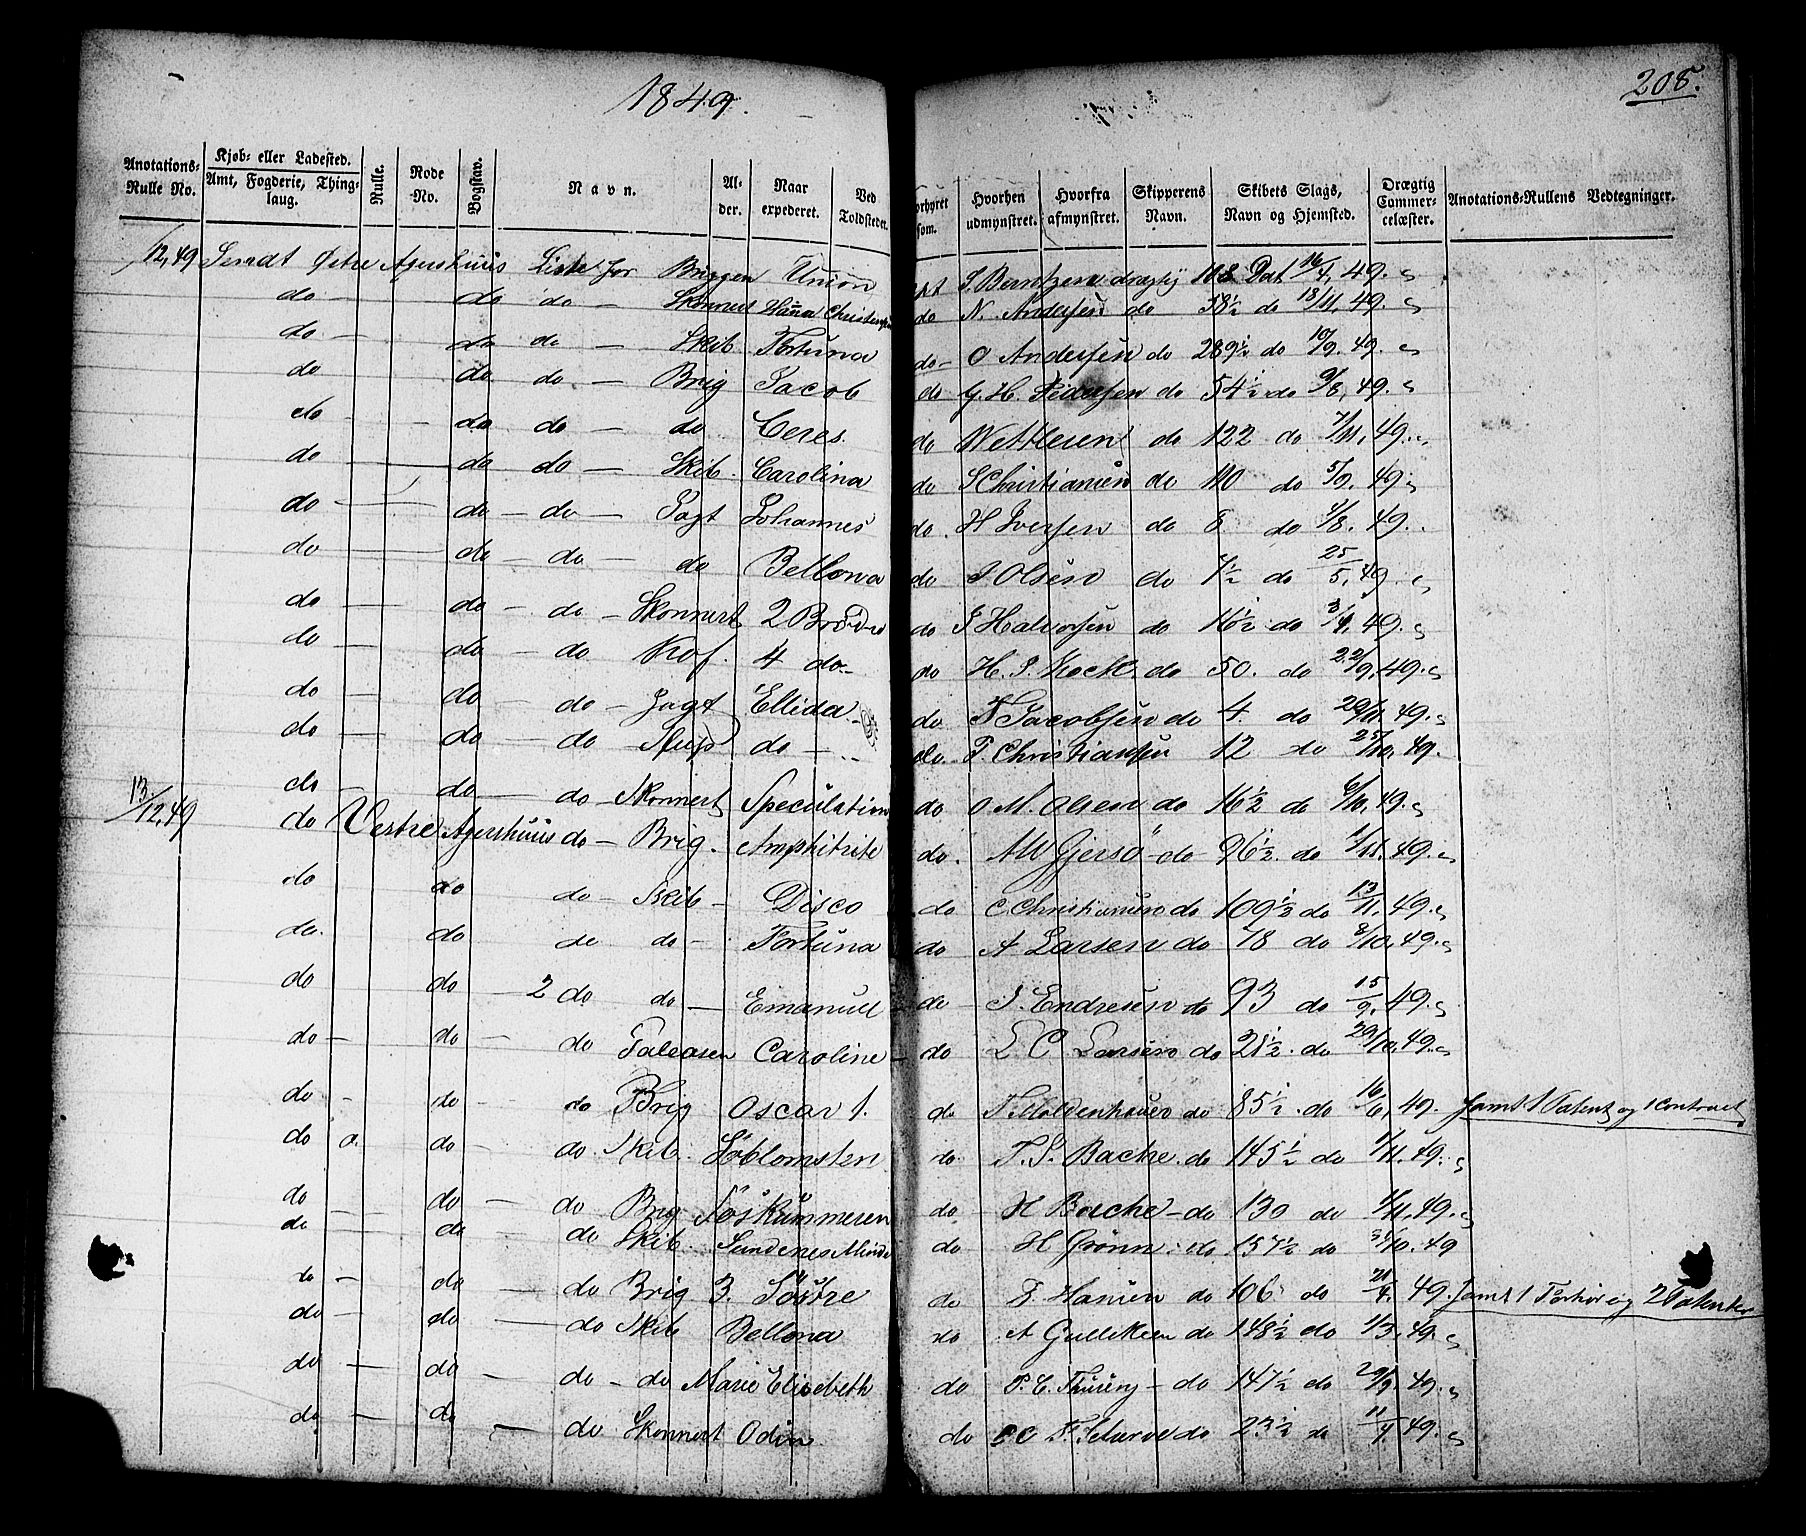 1849.
208.
Anotations-Rulle No.
Kjøb- eller Ladested.
Amt, Fogderie, Thinglaug.
Rulle.
Rode No.
Bogstav.
Navn.
Alder.
Naar expederet.
Ved Toldstedet
som.
Hvorhen udmynstret.
Hvorfra afmynstret.
Skipperens Navn.
Skibets Slags, Navn og Hjemsted.
Drægtig Commercelæster.
Anotations-Rullens Vedtegninger.
/12,49 Sendt Østre Agershuus Liste for Briggen Union S. Berntzen drægtig 118 Dat 16/4, 49.
do - do do - Skonnert Hanna do N. Andersen do 58½ do 18/11, 49.
do do do - Skib Fortuna do - O Andersen do 289½ do 10/9. 49.
do do do - Brig Jacob do G. H. Pedersen do 54½ do 9/8, 49.
do - do do - do Ceres do Wettlesen do 122 do 7/11, 49.
do - do do - Skib. Carolina do S Christiansen do 110 do 5/9. 49.
do - do - do - Jagt Johannes do. H Iversen do 8 do 1/8. 49.
do - do - do - do Bellona do S Olsen do 7½ do 25/5, 49.
do - do - do - Skonnert 2 Brødre do S Halvorsen do 16½ do 3/4, 49.
do - do - do Kof. 4 do - do H. P. Koch do 50. do 22/9, 49.
do - do - do - Jagt Ellida do N Jacobsen do 4. do 20/11. 49.
do - do - do Slup do - do P. Christiansen 12 do 25/10. 49.
do do - do - Skonnert Speculation do O M. Olsen do 16½ do 6/10, 49.
13/12,49 do Vestre Agershuus do - Brig. Amphitrite do. AW Gjersö - do 96½. do 1/11. 49.
do do do - Skib - Disco do C. Christiansen do 109½ do 13/11, 49.
do. do do do - Fortuna do A Larsen do 78 do 8/10, 49.
do do - 2 do do - Emanuel do - S. Endresen do 93 do 15/9, 49.
do - do - do Galeasen Caroline - do L C Larsen do 21½. do 29/10, 49.
do - do - do Brig Oscar 1. do T. Moldenhauer do 85½. do 16/6, 49. Samt 1 Patent og 1 Contract
do do - do Skib. Søblomsten do. T. S. Bache. do 145½ do 1/11. 49.
do - do - do Brig Töskummeren do. H Bache - do 130 do 1/11, 49.
do do - do Skib. Sandenes Minde do H Grønn. do 157½ do /10. 49
do - do - do Brig 3. Söstre do S. Hansen do 106 do 21/4. 49. Samt 1 Forhør og 2 Patenter
do - do - do Skib Bellona do A Gulliksen do 148½ do 1/3. 49.
do - do - do - do Marie Elisabeth do P. C. Thuring - do 147½ do 29/9, 49.
do - do - do Skonnert Odin do do 23½ do 11/9. 49.